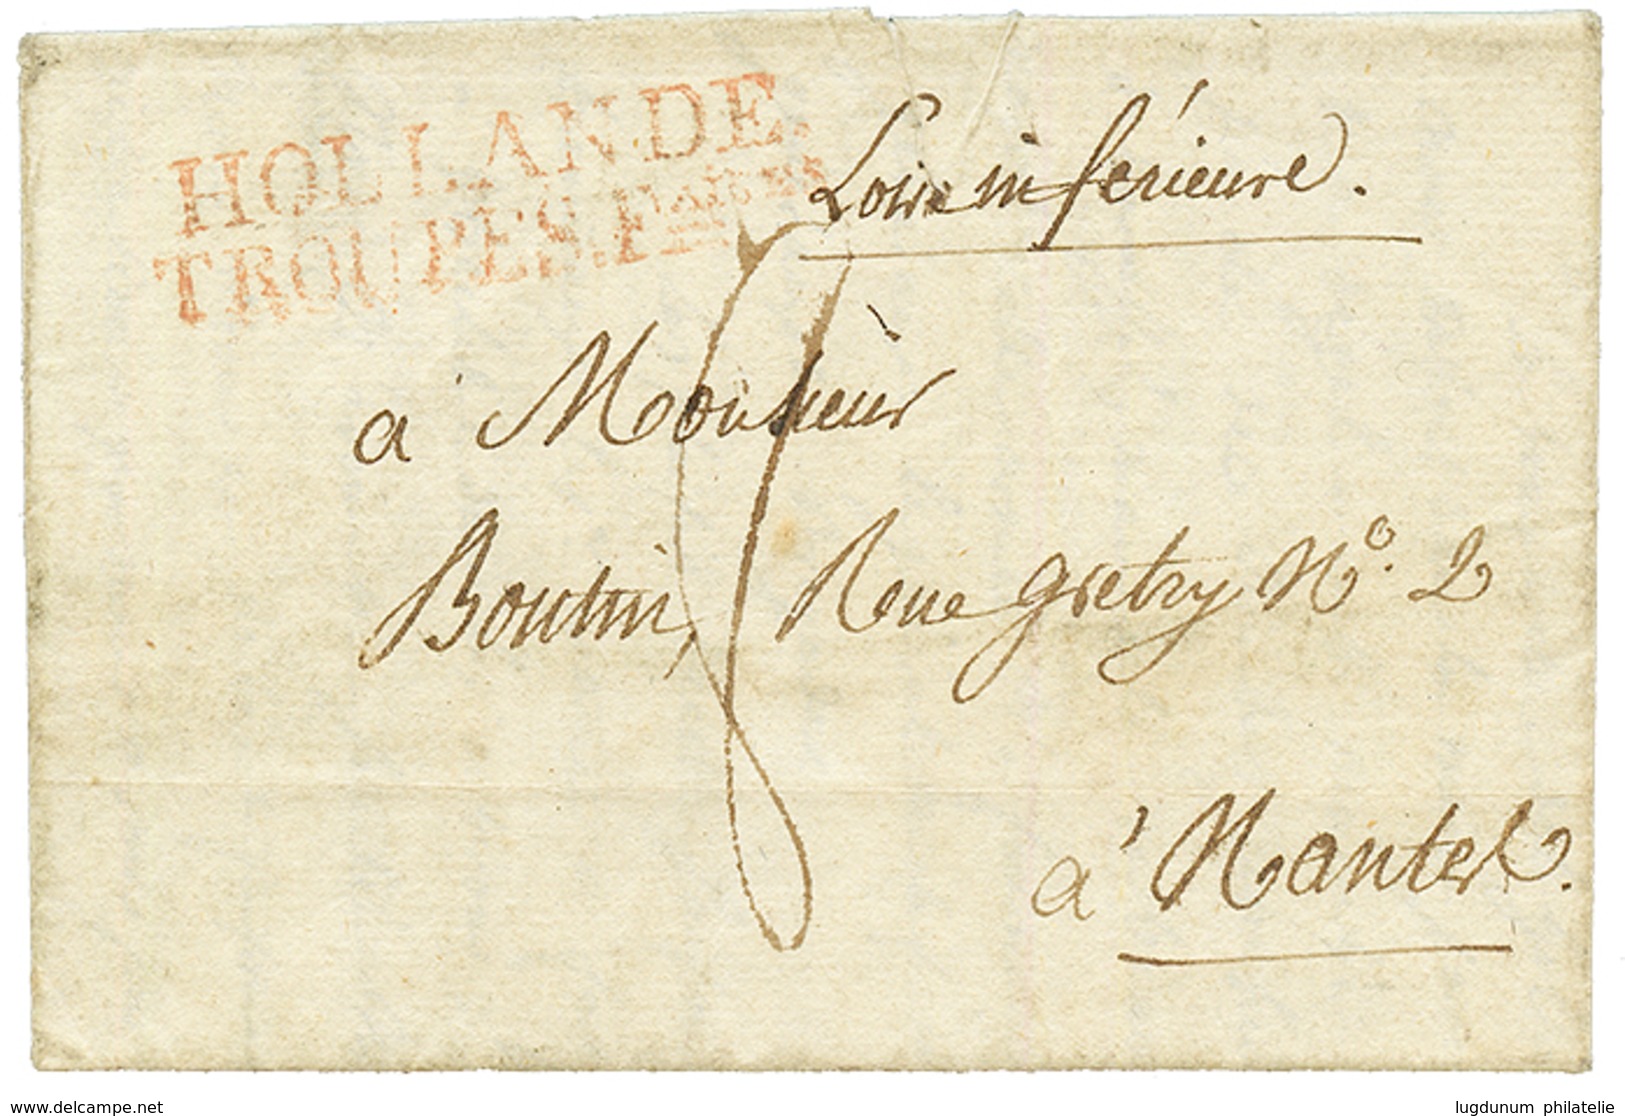 HOLLANDE.
TROUPES.Fçaises
Loire inférieure.
8
à Monsieur
Boutin, Rue gretry N.º 2
à Nantes.
delcampe.net
lugdunum philatelie